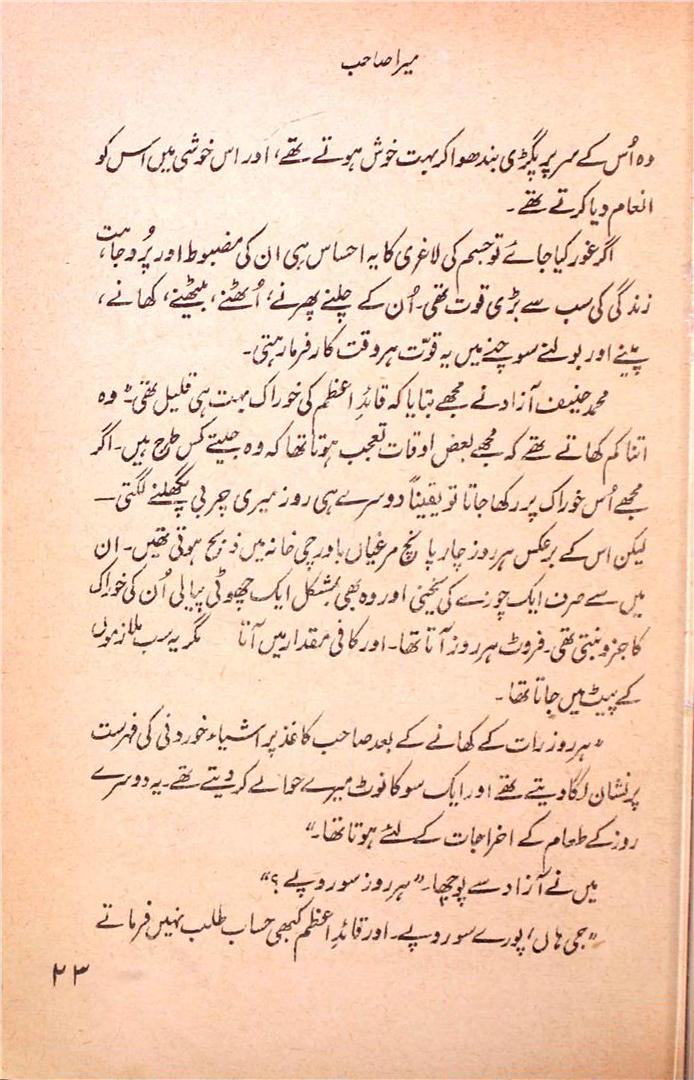 میرا صاحب
وہ اُس کے سر پر پگڑی بندھوا کر بہت خوش ہوتے تھے، اور اس خوشی میں اس کو
انعام دیا کرتے تھے۔
اگر غور کیا جائے تو جسم کی لاغری کا یہ احساس ہی ان کی مضبوط اور پُر وجاہت
زندگی کی سب سے بڑی قوت تھی۔ اُن کے چلنے پھرنے، اُٹھنے، بیٹھنے، کھانے،
پینے اور بولنے سوچنے میں یہ قوّت ہر وقت کار فرما رہتی۔
محمد حنیف آزاد نے مجھے بتایا کہ قائدِ اعظم کی خوراک بہت ہی قلیل تھی۔ "وہ
اتنا کم کھاتے تھے کہ مجھے بعض اوقات تعجب ہوتا تھا کہ وہ جیتے کس طرح ہیں۔ اگر
مجھے اُس خوراک پر رکھا جاتا تو یقیناً دوسرے ہی روز میری چربی پگھلنے لگتی —
لیکن اس کے برعکس ہر روز چار پانچ مرغیاں باورچی خانہ میں ذبح ہوتی تھیں۔ ان
میں سے صرف ایک چوزے کی یخنی اور وہ بھی بمشکل ایک چھوٹی پیالی اُن کی خوراک
کا جزو بنتی تھی۔ فروٹ ہر روز آتا تھا۔ اور کافی مقدار میں آتا مگر یہ سب ملازموں
کے پیٹ میں جاتا تھا۔
"ہر روز رات کے کھانے کے بعد صاحب کاغذ پر اشیاء خوردنی کی فہرست
پر نشان لگا دیتے تھے اور ایک سو کا نوٹ میرے حوالے کر دیتے تھے۔ یہ دوسرے
روز کے طعام کے اخراجات کے لئے ہوتا تھا۔"
میں نے آزاد سے پوچھا۔ "ہر روز سو روپے؟"
"جی ہاں، پورے سو روپے۔ اور قائدِ اعظم کبھی حساب طلب نہیں فرماتے
۲۳